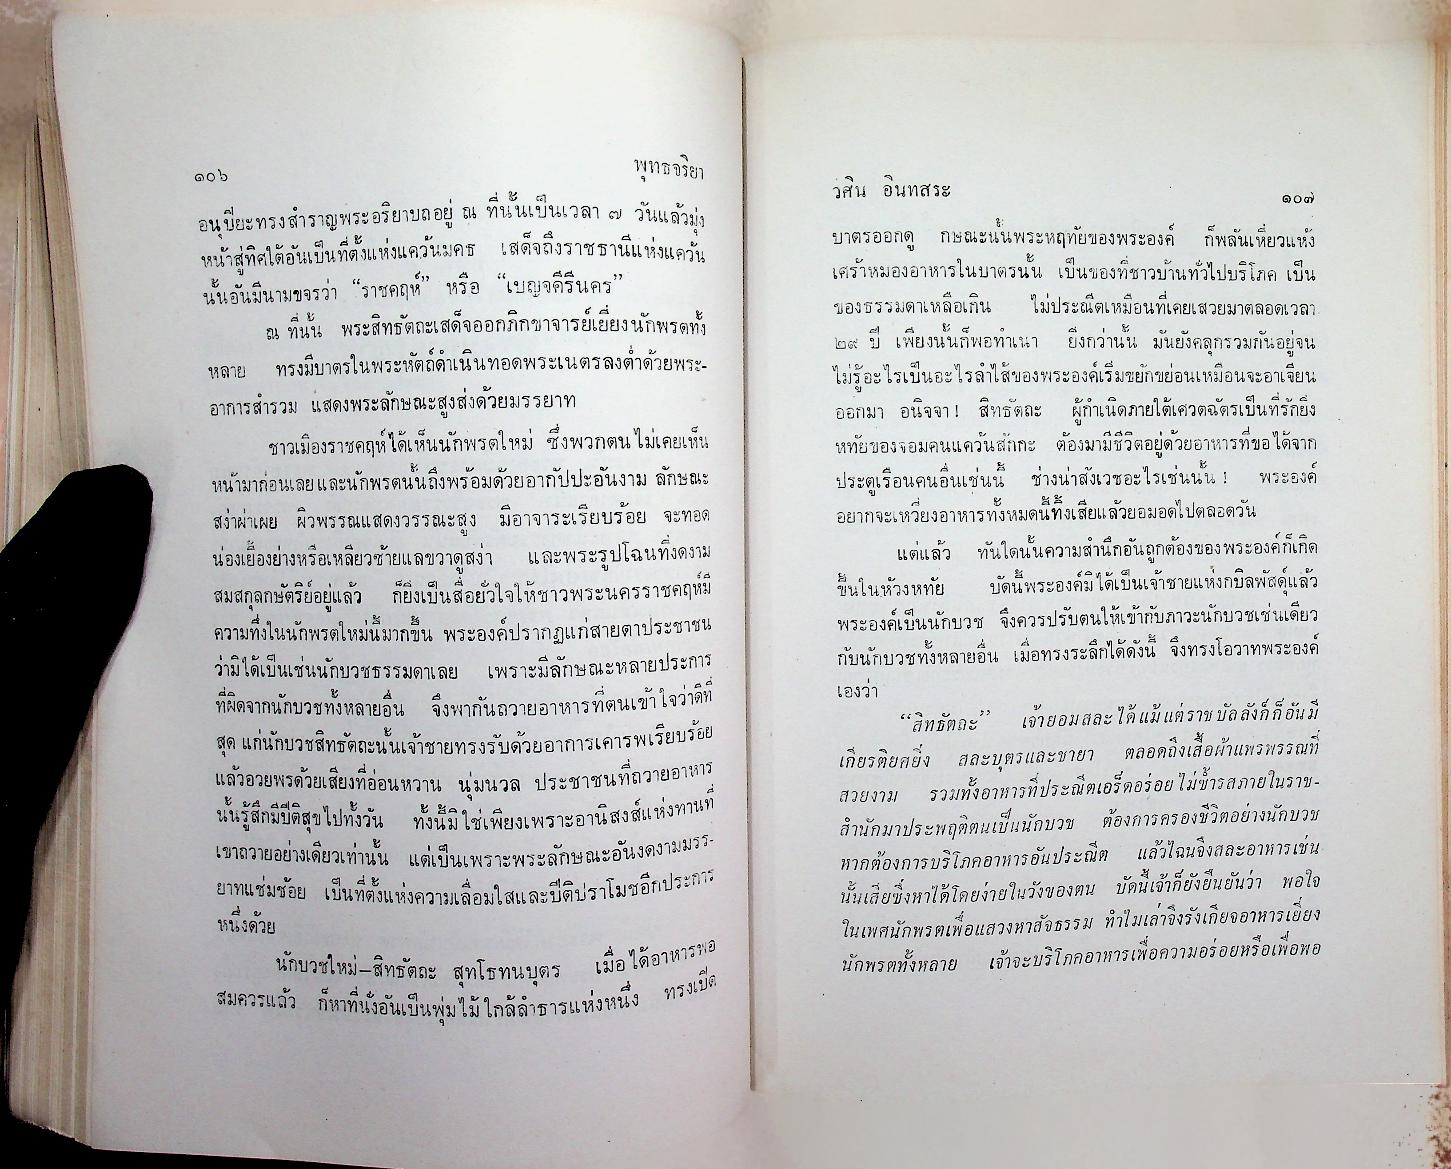 ๑๐๖ พุทธจริยา
อนุปิยะทรงสำราญพระอริยาบถอยู่ ณ ที่นั้นเป็นเวลา ๗ วันแล้วมุ่ง
หน้าสู่ทิศใต้อันเป็นที่ตั้งแห่งแคว้นมคธ เสด็จถึงราชธานีแห่งแคว้น
นั้นอันมีนามขจรว่า “ราชคฤห์” หรือ “เบญจคีรีนคร”
ณ ที่นั้น พระสิทธัตถะเสด็จออกภิกขาจารย์เยี่ยงนักพรตทั้ง
หลาย ทรงมีบาตรในพระหัตถ์ดำเนินทอดพระเนตรลงต่ำด้วยพระ-
อาการสำรวม แสดงพระลักษณะสูงส่งด้วยมรรยาท
ชาวเมืองราชคฤห์ได้เห็นนักพรตใหม่ ซึ่งพวกตนไม่เคยเห็น
หน้ามาก่อนเลยและนักพรตนั้นถึงพร้อมด้วยอากัปปะอันงาม ลักษณะ
สง่าผ่าเผย ผิวพรรณแสดงวรรณะสูง มีอาจาระเรียบร้อย จะทอด
น่องเยื้องย่างหรือเหลียวซ้ายแลขวาดูสง่า และพระรูปโฉนที่งดงาม
สมสกุลกษัตริย์อยู่แล้ว ก็ยิ่งเป็นสื่อยั่วใจให้ชาวพระนครราชคฤห์มี
ความทึ่งในนักพรตใหม่นี้มากขึ้น พระองค์ปรากฏแก่สายตาประชาชน
ว่ามิได้เป็นเช่นนักบวชธรรมดาเลย เพราะมีลักษณะหลายประการ
ที่ผิดจากนักบวชทั้งหลายอื่น จึงพากันถวายอาหารที่ตนเข้าใจว่าดีที่
สุด แก่นักบวชสิทธัตถะนั้นเจ้าชายทรงรับด้วยอาการเคารพเรียบร้อย
แล้วอวยพรด้วยเสียงที่อ่อนหวาน นุ่มนวล ประชาชนที่ถวายอาหาร
นั้นรู้สึกมีปีติสุขไปทั้งวัน ทั้งนี้มิใช่เพียงเพราะอานิสงส์แห่งทานที่
เขาถวายอย่างเดียวเท่านั้น แต่เป็นเพราะพระลักษณะอันงดงามมรร-
ยาทแช่มช้อย เป็นที่ตั้งแห่งความเลื่อมใสและปีติปราโมชอีกประการ
หนึ่งด้วย
นักบวชใหม่–สิทธัตถะ สุทโธทนบุตร เมื่อได้อาหารพอ
สมควรแล้ว ก็หาที่นั่งอันเป็นพุ่มไม้ใกล้ลำธารแห่งหนึ่ง ทรงเปิด
วศิน อินทสระ ๑๐๗
บาตรออกดู กษณะนั้นพระหฤทัยของพระองค์ ก็พลันเหี่ยวแห้ง
เศร้าหมองอาหารในบาตรนั้น เป็นของที่ชาวบ้านทั่วไปบริโภค เป็น
ของธรรมดาเหลือเกิน ไม่ประณีตเหมือนที่เคยเสวยมาตลอดเวลา
๒๙ ปี เพียงนั้นก็พอทำเนา ยิ่งกว่านั้น มันยังคลุกรวมกันอยู่จน
ไม่รู้อะไรเป็นอะไรลำไส้ของพระองค์เริ่มขยักขย่อนเหมือนจะอาเจียน
ออกมา อนิจจา! สิทธัตถะ ผู้กำเนิดภายใต้เศวตฉัตรเป็นที่รักยิ่ง
หทัยของจอมคนแคว้นสักกะ ต้องมามีชีวิตอยู่ด้วยอาหารที่ขอได้จาก
ประตูเรือนคนอื่นเช่นนี้ ช่างน่าสังเวชอะไรเช่นนั้น! พระองค์
อยากจะเหวี่ยงอาหารทั้งหมดนี้ทิ้งเสียแล้วยอมอดไปตลอดวัน
แต่แล้ว ทันใดนั้นความสำนึกอันถูกต้องของพระองค์ก็เกิด
ขึ้นในห้วงหทัย บัดนี้พระองค์มิได้เป็นเจ้าชายแห่งกบิลพัสดุ์แล้ว
พระองค์เป็นนักบวช จึงควรปรับตนให้เข้ากับภาวะนักบวชเช่นเดียว
กับนักบวชทั้งหลายอื่น เมื่อทรงระลึกได้ดังนี้ จึงทรงโอวาทพระองค์
เองว่า
“สิทธัตถะ” เจ้ายอมสละได้แม้แต่ราชบัลลังก์ก็อันมี
เกียรติยศยิ่ง สละบุตรและชายา ตลอดถึงเสื้อผ้าแพรพรรณที่
สวยงาม รวมทั้งอาหารที่ประณีตเอร็ดอร่อยไม่ซ้ำรสภายในราช-
สำนักมาประพฤติตนเป็นนักบวช ต้องการครองชีวิตอย่างนักบวช
หากต้องการบริโภคอาหารอันประณีต แล้วไฉนจึงสละอาหารเช่น
นั้นเสียซึ่งหาได้โดยง่ายในวังของตน บัดนี้เจ้าก็ยังยืนยันว่า พอใจ
ในเพศนักพรตเพื่อแสวงหาสัจธรรม ทำไมเล่าจึงรังเกียจอาหารเยี่ยง
นักพรตทั้งหลาย เจ้าจะบริโภคอาหารเพื่อความอร่อยหรือเพื่อพอ